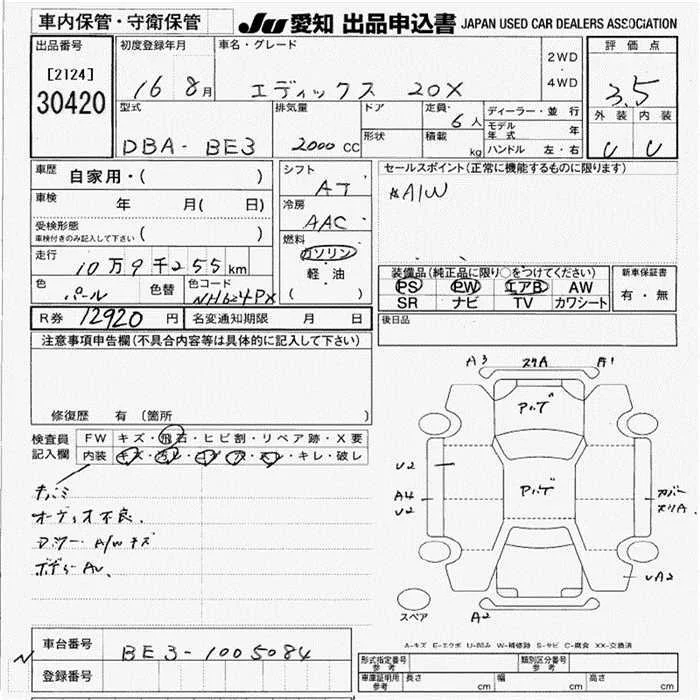 車内保管・守衛保管
JU 愛知 出品申込書 JAPAN USED CAR DEALERS ASSOCIATION
出品番号
[2124]
30420
初度登録年月
16 8月
車名・グレード
エディックス 20X
2WD
・
4WD
評価点
3.5
外装 内装
U U
型式
DBA- BE3
排気量
2000 cc
ドア
形状
定員
6人
積載
kg
ディーラー・並 行
モデル年式 年
ハンドル 左・右
車歴
自家用・( )
車検
年 月( 日)
受検形態
車検付きのみ記入して下さい ( )
走行
10万9千255km
色
パール
色替
色コード
NH624PX
シフト
AT
冷房
AAC
燃料
ガソリン
軽・油
( )
セールスポイント(正常に機能するものに限ります)
A/W
装備品(純正品に限り○をつけてください)
PS PW エアB AW
SR ナビ TV カワシート
新車保証書
有・無
R券 12920 円
名変通知期限 月 日
後日品
注意事項申告欄(不具合内容等は具体的に記入して下さい)
修復歴 有 (箇所 )
検査員
記入欄
FW キズ・飛石・ヒビ割・リペア跡・X要
内装 キズ・汚レ・コゲ・穴・スレ・キレ・破レ
オーディオ不良.
A/Wキズ
A3 スリA A1
U2
A4
U2
カバー
スリA
UA2
A2
スペア
A-キズ E-エクボ U-凹み W-補修跡 S-サビ C-腐食 XX-交換済
車台番号
BE3-1005084
登録番号
N
形式指定番号
参考
類別区分番号
参考
車庫証明用
参考
長さ cm 幅 cm 高さ cm